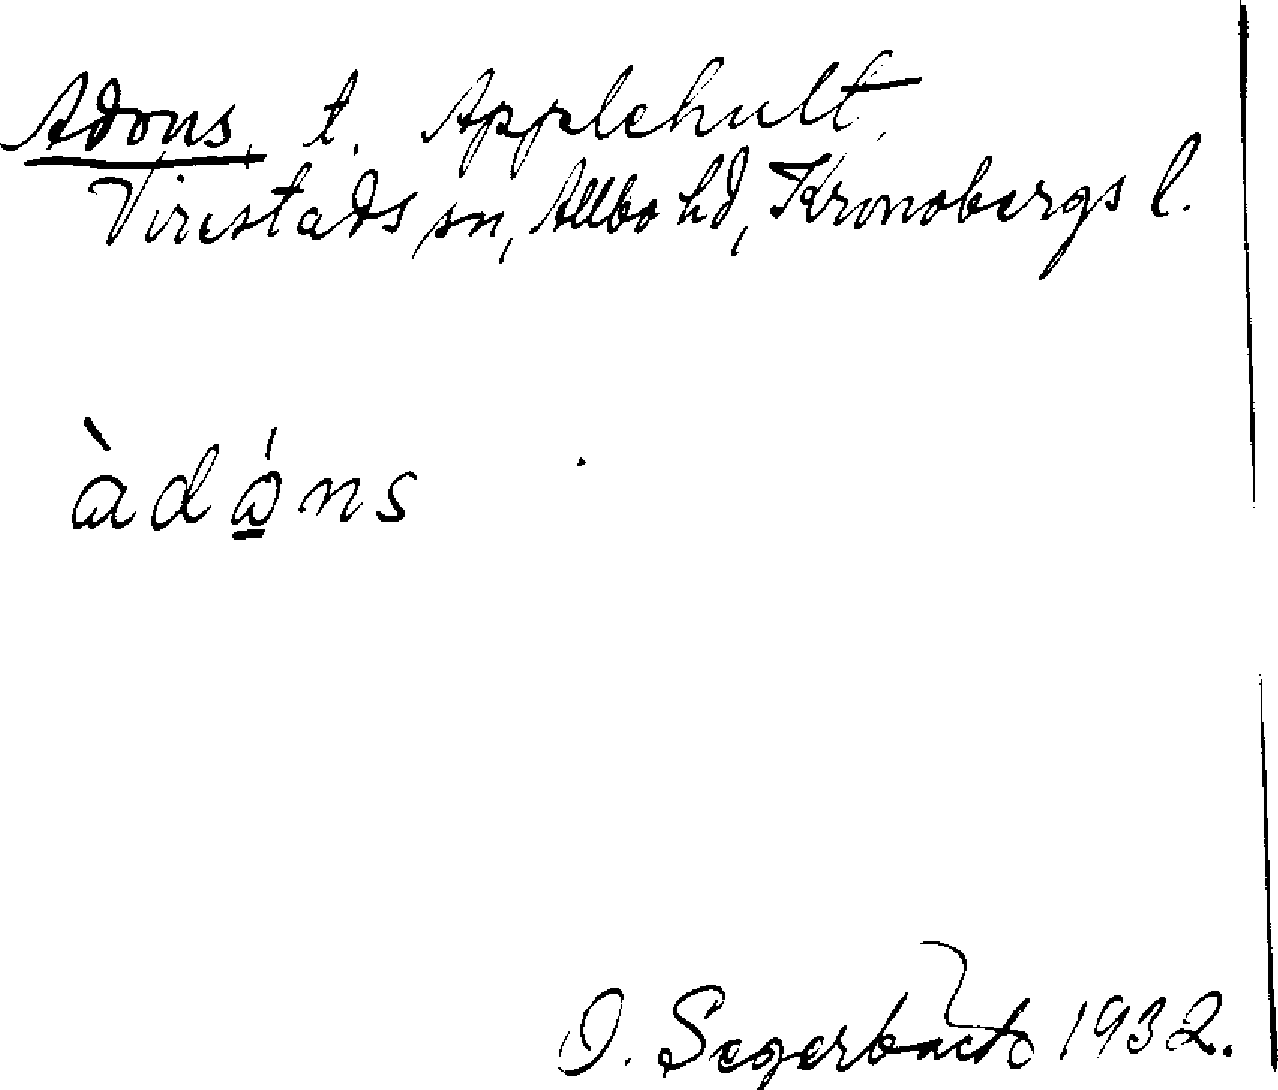 Adons, t. Applehult,
Virestads sn, Allbo hd, Kronobergs l.
àdǫ́ns
O. Segerbäck 1932.